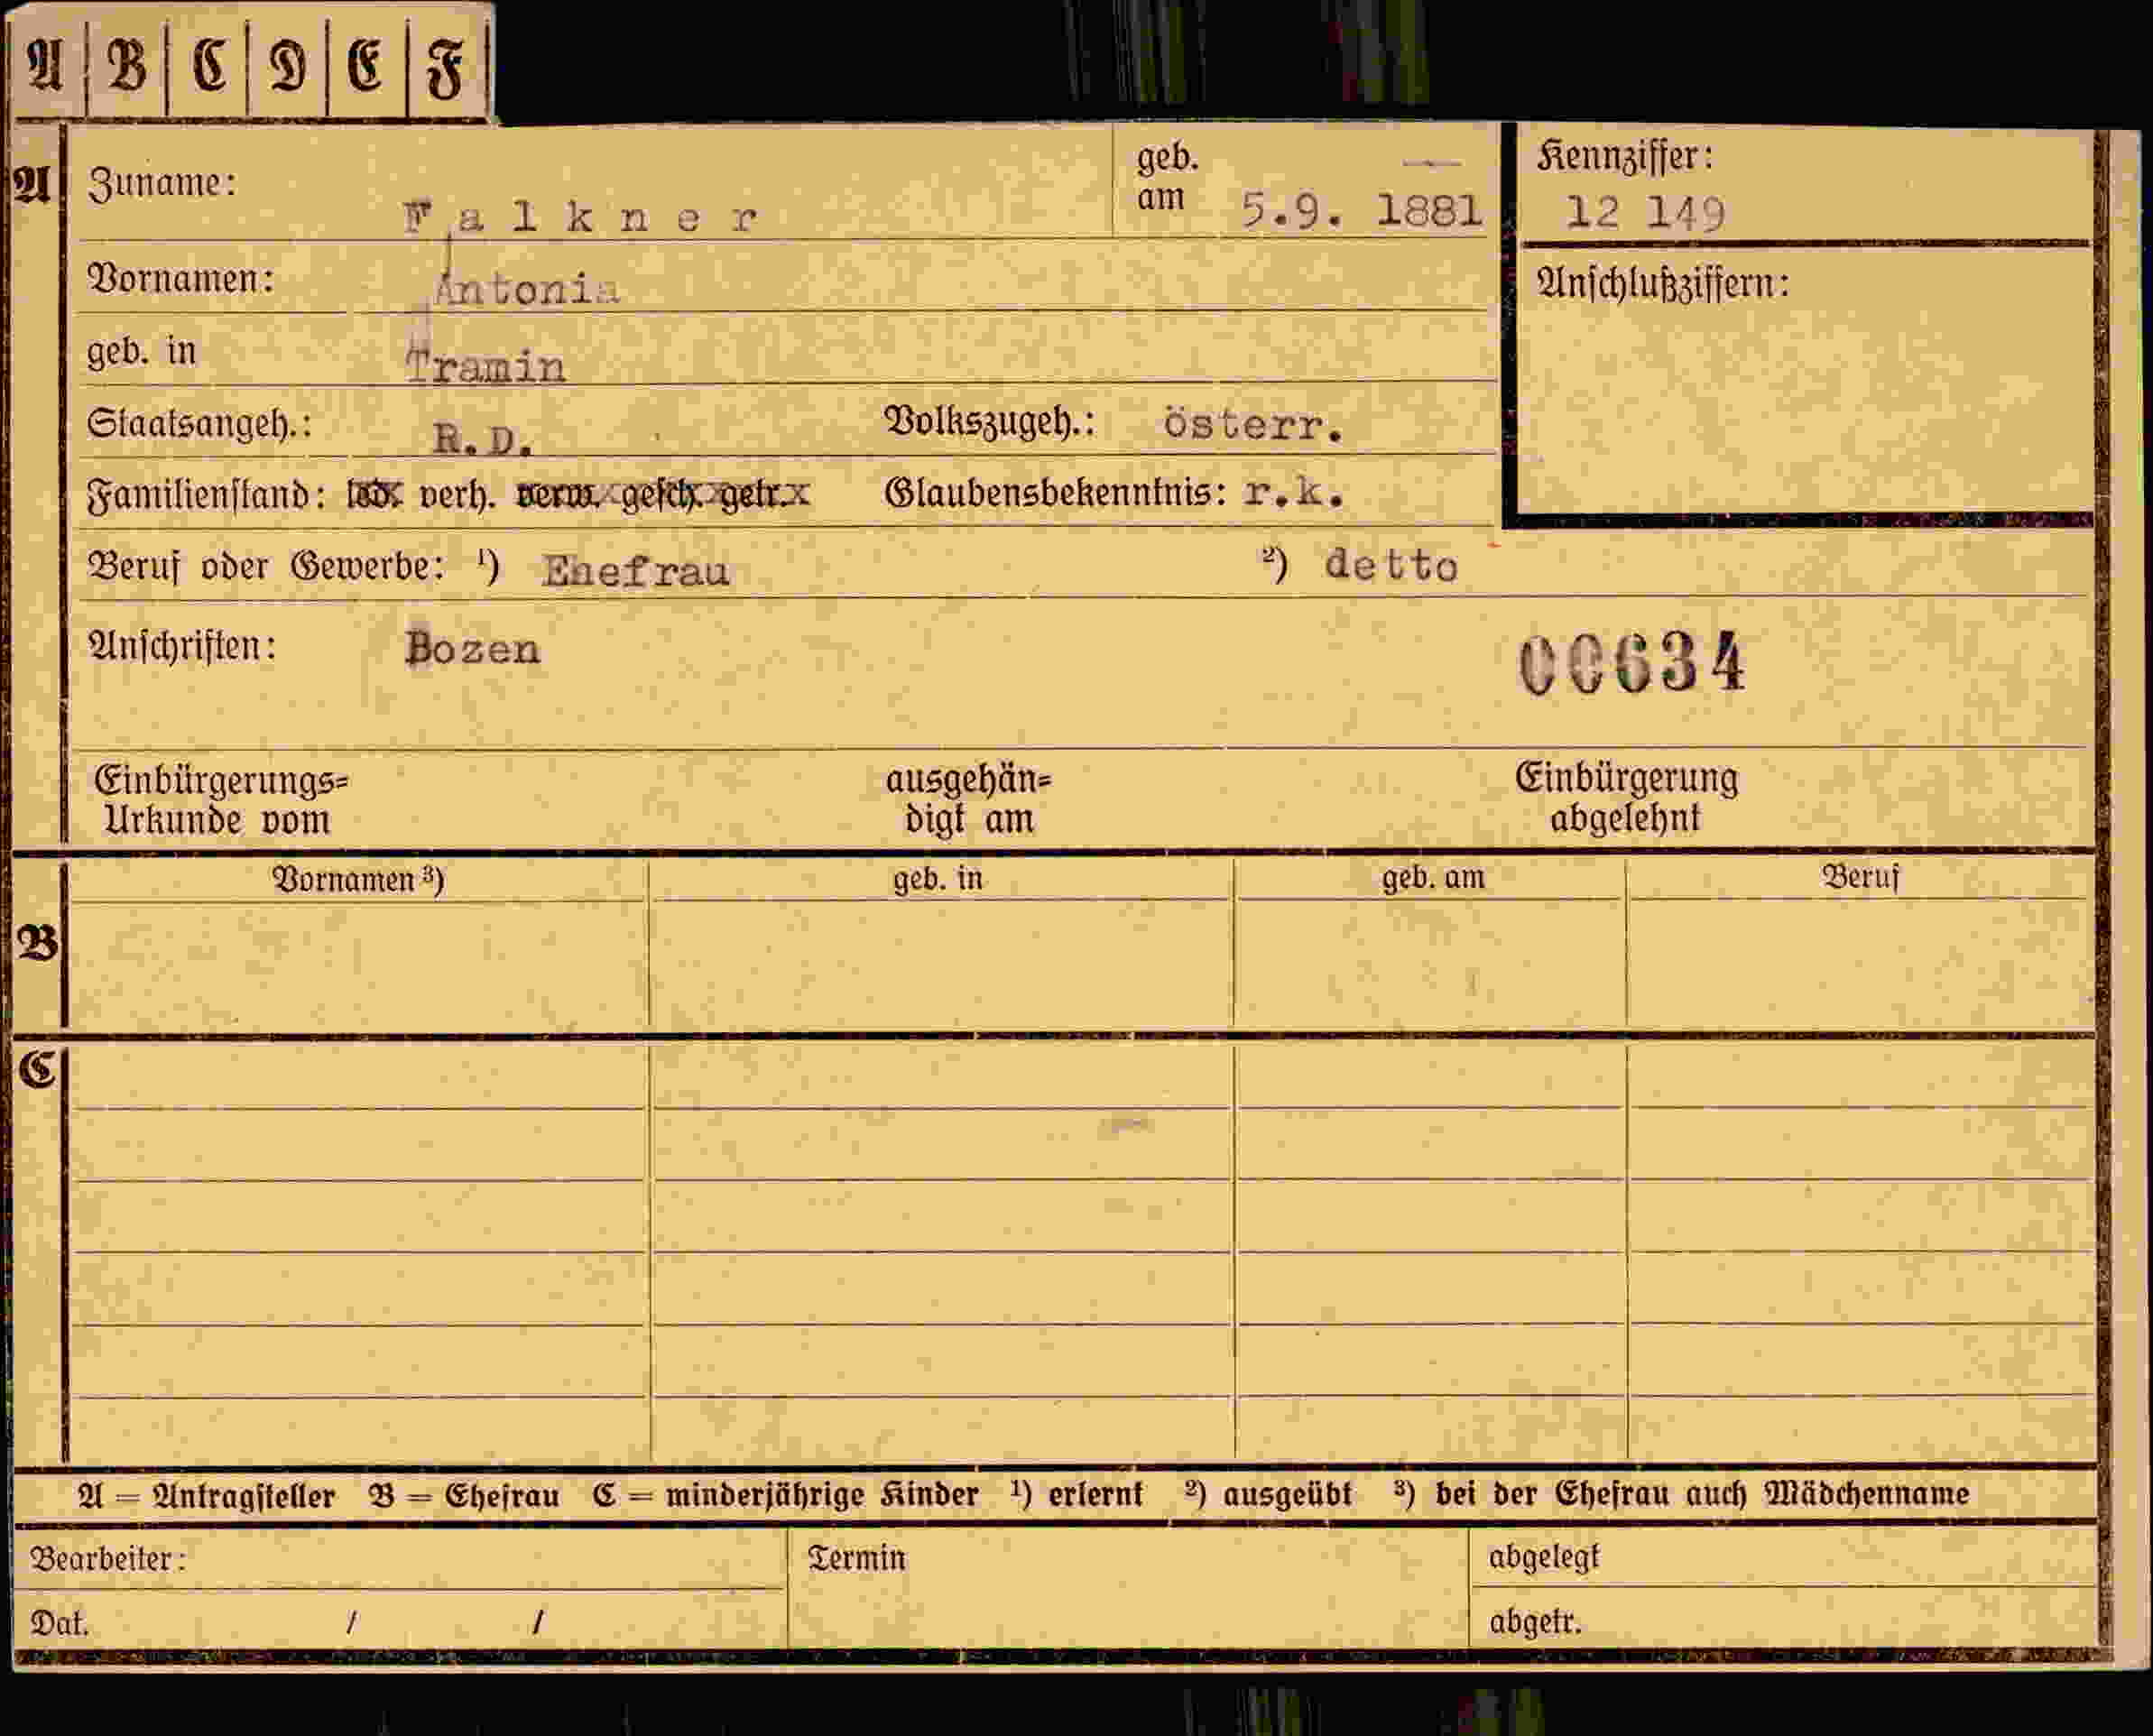 A B C D E F
A Zuname: Falkner geb. am 5.9. 1881 Kennziffer: 12 149
Vornamen: Antonia Anschlußziffern:
geb. in Tramin
Staatsangeh.: R.D. Volkszugeh.: österr.
Familienstand: led. verh. verw. gesch. getr. Glaubensbekenntnis: r.k.
Beruf oder Gewerbe: ¹) Ehefrau ²) detto
Anschriften: Bozen 00634
Einbürgerungs= ausgehän= Einbürgerung
Urkunde vom digt am abgelehnt
Vornamen ³) geb. in geb. am Beruf
B
C
A = Antragsteller B = Ehefrau C = minderjährige Kinder ¹) erlernt ²) ausgeübt ³) bei der Ehefrau auch Mädchenname
Bearbeiter: Termin abgelegt
Dat. / / abgetr.